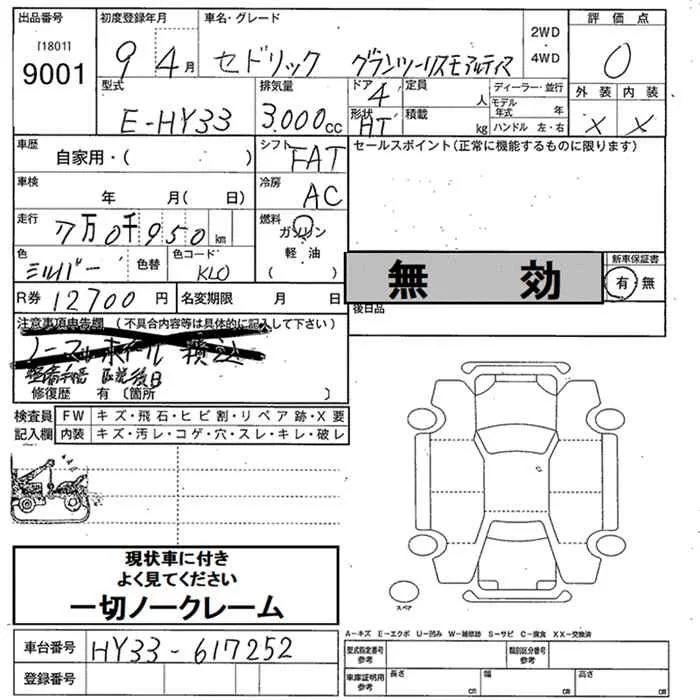 出品番号 初度登録年月 車名・グレード 評価点
[1801] 2WD
9001 9 4月 セドリック グランツーリスモアルティマ 4WD 0
型式 排気量 ドア 定員 ディーラー・並行 外装 内装
4 人 モデル年式 年
E-HY33 3.000cc 形状 HT 積載 kg ハンドル 左・右 × ×
車歴 シフト FAT セールスポイント(正常に機能するものに限ります)
自家用・( )
車検 冷房 AC
年 月( 日)
走行 燃料
7万0千950km ガソリン
軽油
色 色替 色コード ( )
シルバー KLO
無効 新車保証書
有・無
R券 12700円 名変期限 月 日
後日品
注意事項申告欄 (不具合内容等は具体的に記入して下さい)
ノーマルホイール 積込
整備手帳 取説後日
修復歴 有〔箇所 〕
検査員 FW キズ・飛石・ヒビ割・リペア跡・X要
記入欄 内装 キズ・汚レ・コゲ・穴・スレ・キレ・破レ
現状車に付き
よく見てください
一切ノークレーム
スペア
A-キズ E-エクボ U-凹み W-補修跡 S-サビ C-腐食 XX-交換済
車台番号 HY33-617252
型式指定番号 参考 類別区分番号 参考
登録番号
車庫証明用 参考 長さ cm 幅 cm 高さ cm